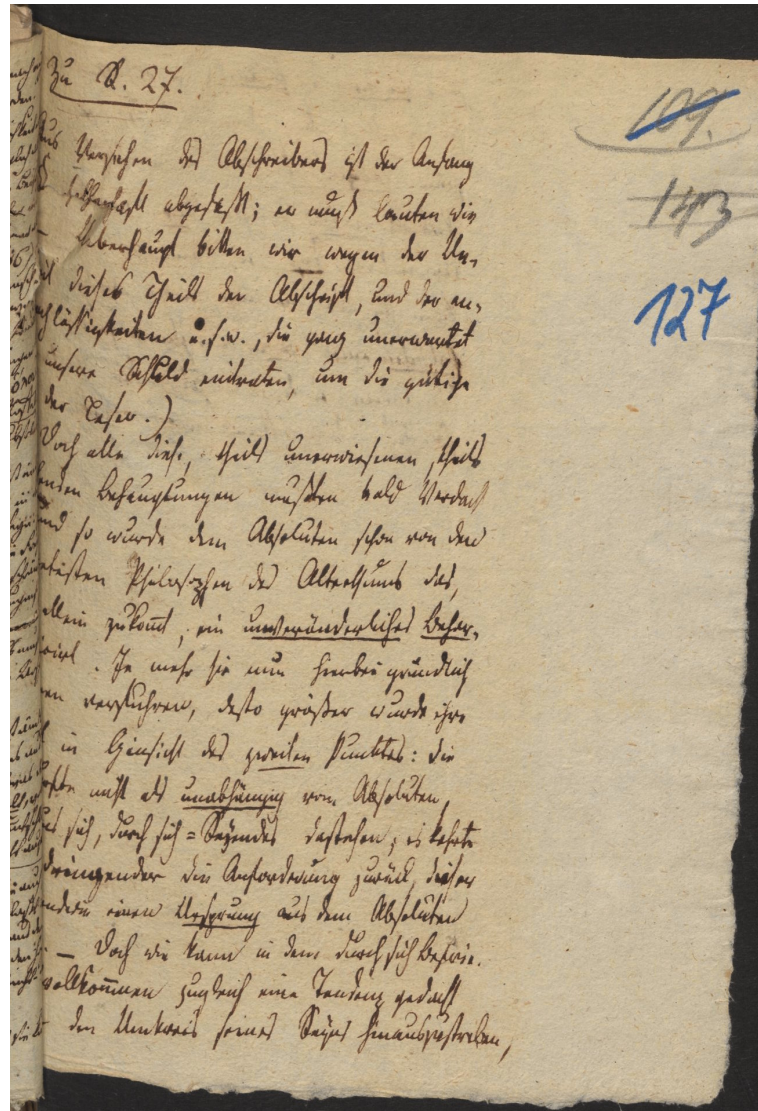 Zu S. 27.
109.
143
127
Aus Versehen des Abschreibers ist der Anfang
fehlerhaft abgefaßt; er muß lauten wie
Ueberhaupt bitten wir wegen der Un-
dieses Theils der Abschrift, und der en-
lässigkeiten u.s.w., die ganz unerwartet
unsere Schuld eintraten, um die gütige
der Leser.)
Doch alle diese, theils unerwiesenen, theils
Behauptungen mußten bald Verdacht
und so wurde dem Absoluten schon von den
Philosophen des Alterthums das,
allein zukomt, ein unveränderliches Behar-
. Je mehr sie nun hierbei gründlich
verfuhren, desto größer wurde ihre
in Hinsicht des zweiten Punktes: die
nicht als unabhängig vom Absoluten,
sich, durch sich = Seyendes dastehen; es kehrte
dringender die Anforderung zurück, dieser
einen Ursprung aus dem Absoluten
— Doch wie kann in dem durch sich
vollkommen zugleich eine Tendenz gedacht
den Umkreis seines Seyns hinauszustreben,